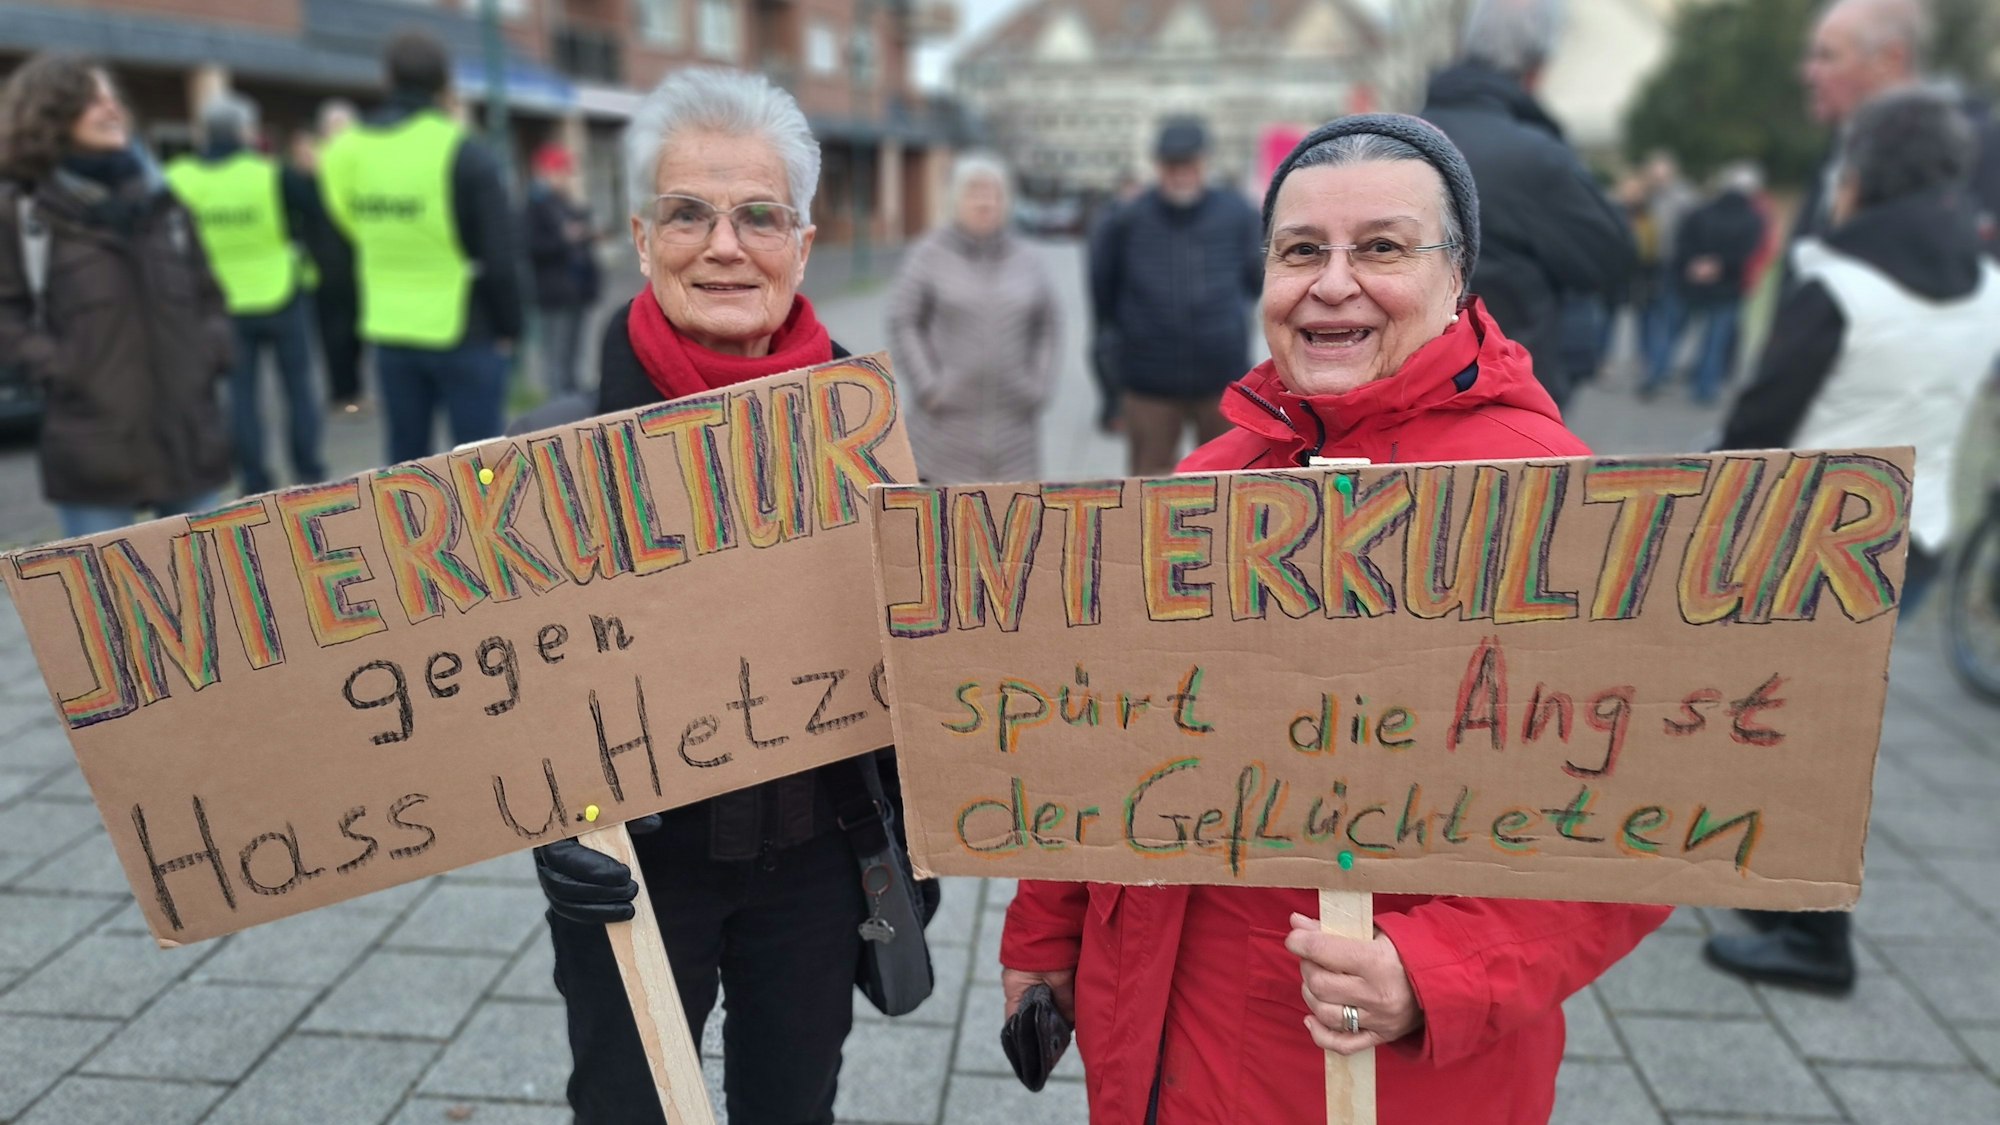 INTERKULTUR
gegen
Hass u. Hetz
INTERKULTUR
spürt die Angst
der Geflüchteten